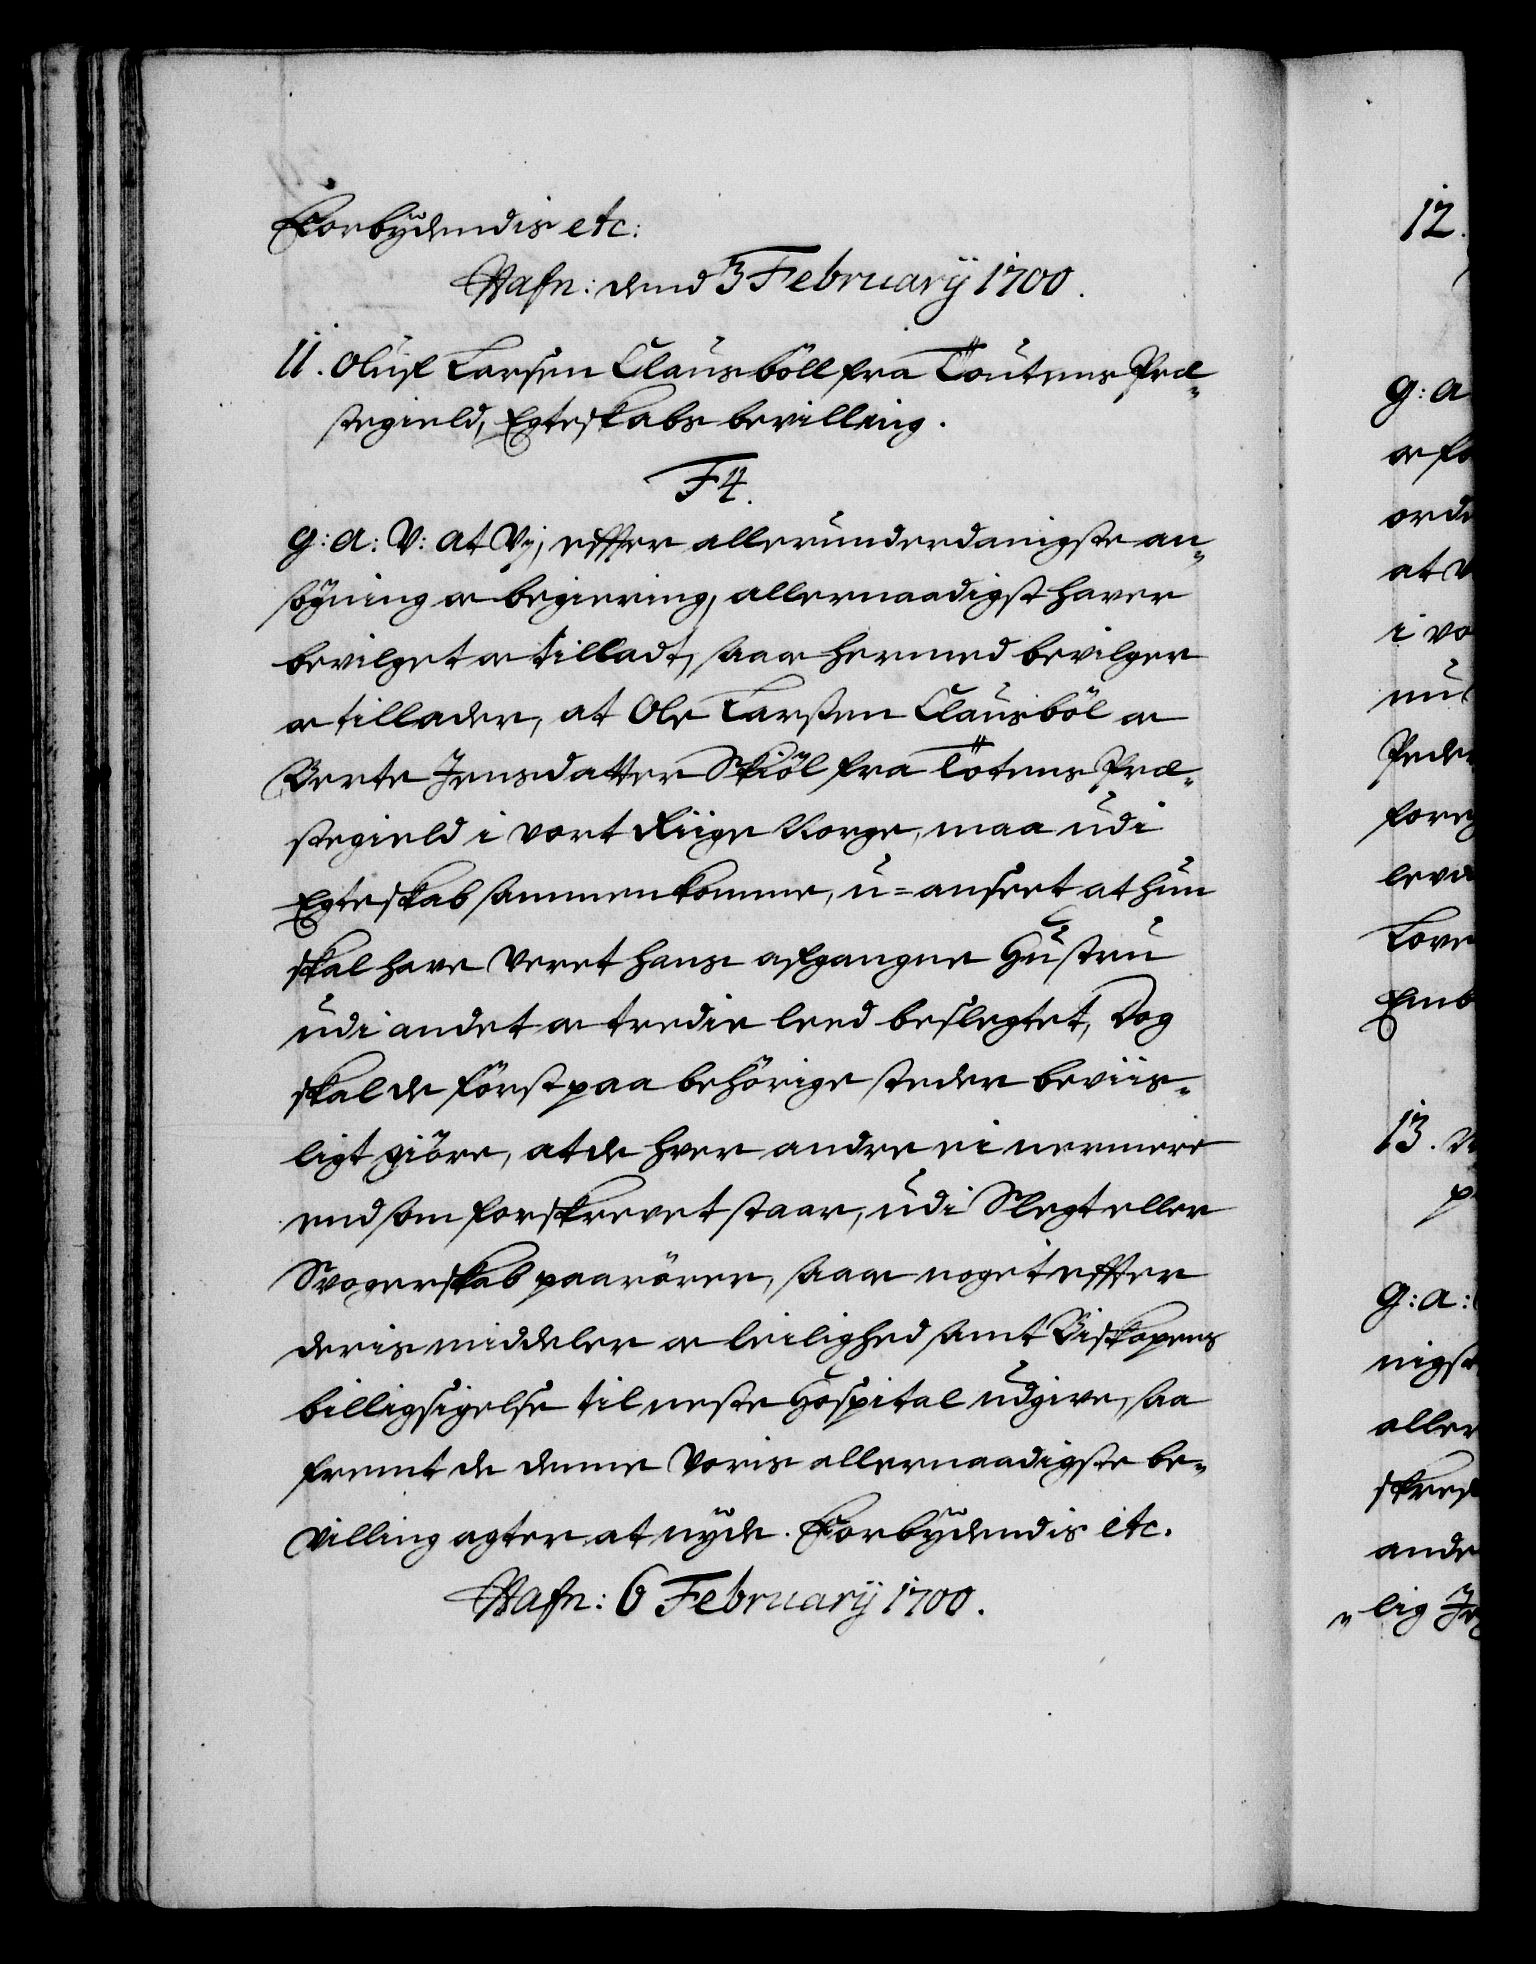 Forbÿdendis etc:
Hafn: dend 3 Februarÿ 1700.
11. Oluf Larsen Clausböll fra Toutens Præ-
stegield, Egteskabs bevilling.
F4.
G: A: V: at Vj, effter allerunderdanigste an-
søgning oc begiering, allernaadigst haver
bevilget oc tilladt, saa oc hermed bevilger
oc tillader, at Ole Larssen Clausböl oc
Berte Jensdatter Skiöl fra Totens Præ-
stegield i vort Riige Norge, maa udi
Egteskab sammenkomme, u=anseet at hun
skal have veret hans afgangne Hustru
udi andet oc tredie leed beslegtet, Dog
skal de först paa behörige steder beviis-
ligt giöre, at de hver andre ei nermere
end som forskrevet staar, udi Slegt eller
Svogerskab paarörer, saa oc noget effter
deris middeler oc leilighed samt Biskopens
billigsigelse til neste Hospital udgive, saa
fremt de denne Voris allernaadigste be-
villing agter at nyde. Forbÿdendis etc.
Hafn: 6 Februarÿ 1700.
12.
G: A
oc fo
orde
at V
i vo
nu
Peder
foreg
leve
Love
Emb
13.
G: A:
nigst
aller
skref
ande
lig